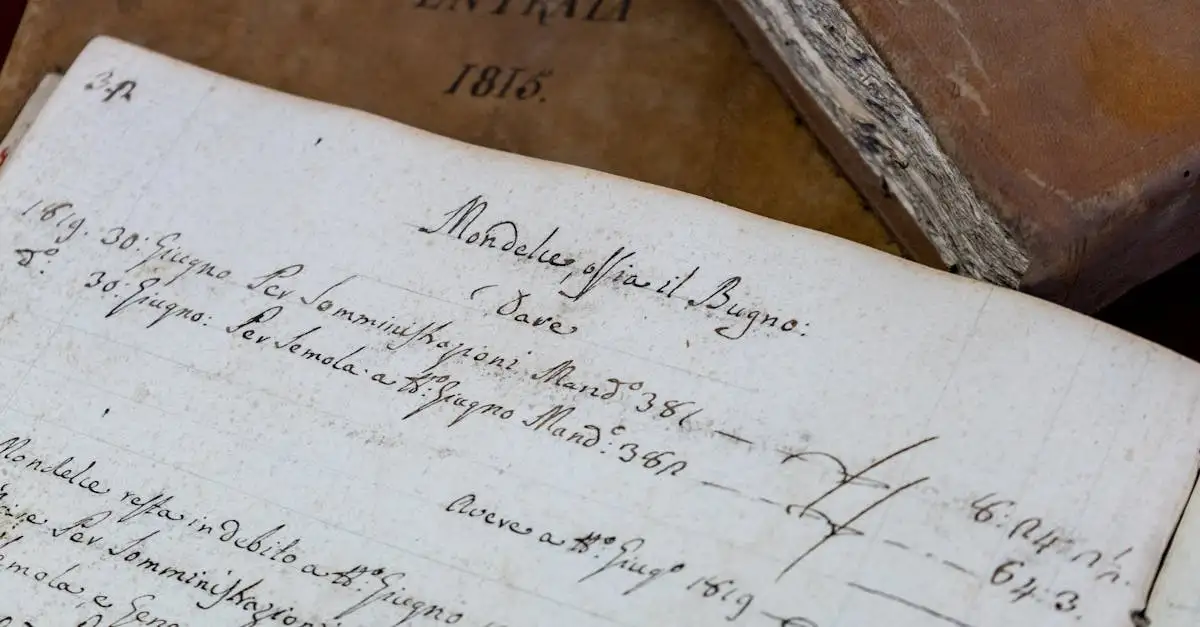 ENTRATA
1815.
Mondelce, ossia il Bugno:
Dare
1819. 30: Giugno Per Somministrazioni Mand.º 381
d.º 30: Giugno: Per Semola a Giugno Mand.º: 382
64:3.
Avere a Giug.º 1819
Mondelce resta in debito a Giugno
Per Somministrazioni
Semola, e